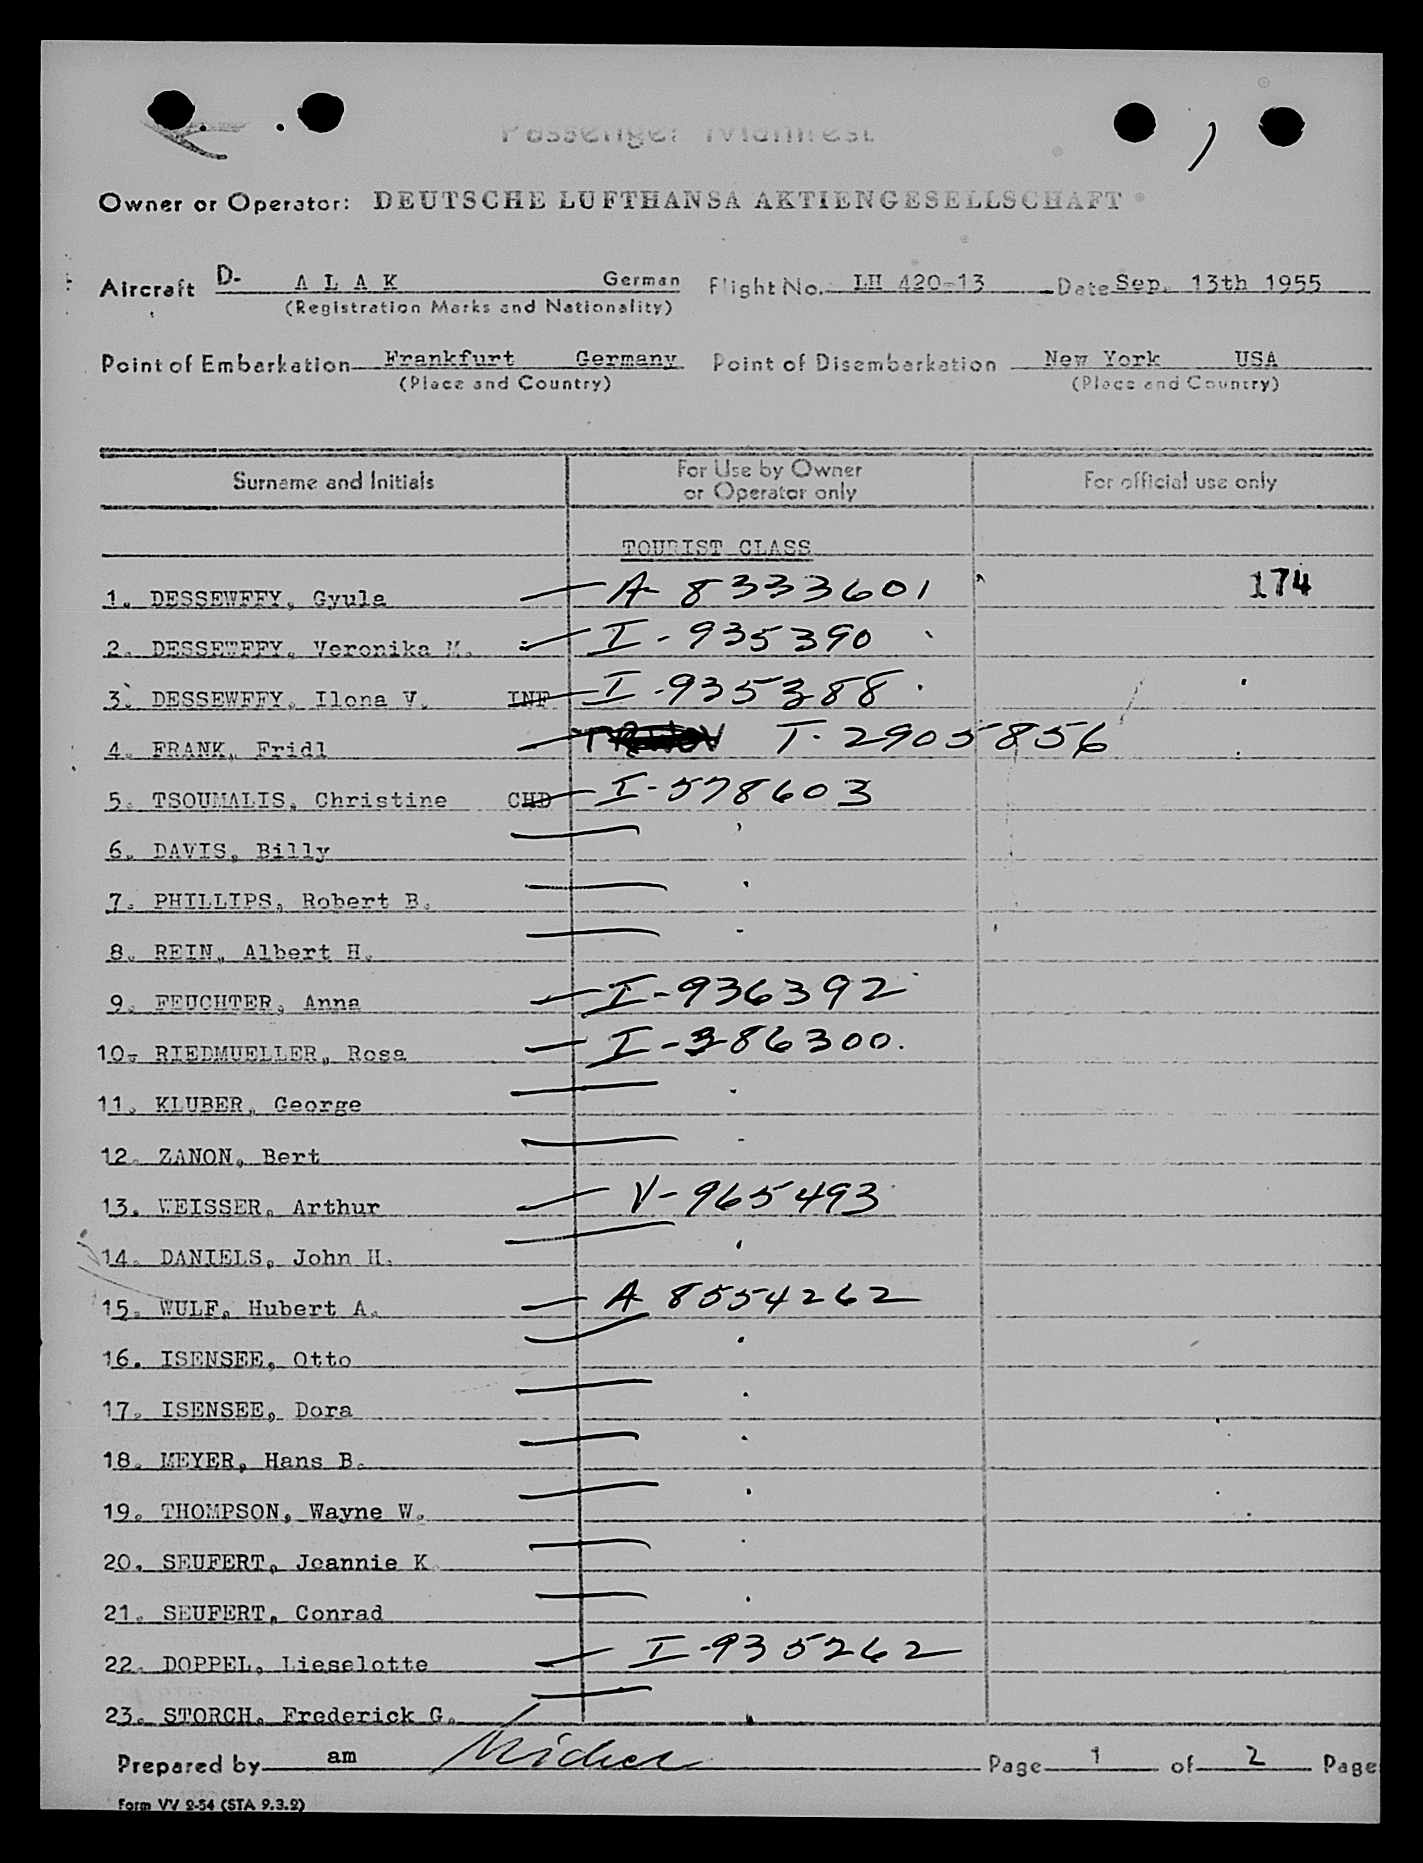 Passenger Manifest
Owner or Operator: DEUTSCHE LUFTHANSA AKTIENGESELLSCHAFT
Aircraft D- A L A K German Flight No. LH 420-13 Date Sep. 13th 1955
(Registration Marks and Nationality)
Point of Embarkation Frankfurt Germany Point of Disembarkation New York USA
(Place and Country) (Place and Country)
Surname and Initials For Use by Owner or Operator only For official use only
TOURIST CLASS
1. DESSEWFFY, Gyula A 8333601 174
2. DESSEWFFY, Veronika M. I-935390
3. DESSEWFFY, Ilona V. INF I-935388
4. FRANK, Fridl T-2905856
5. TSOUMALIS, Christine CHD I-578603
6. DAVIS, Billy
7. PHILLIPS, Robert B.
8. REIN, Albert H.
9. FEUCHTER, Anna I-936392
10. RIEDMUELLER, Rosa I-386300.
11. KLUBER, George
12. ZANON, Bert
13. WEISSER, Arthur V-965493
14. DANIELS, John H.
15. WULF, Hubert A. A 8554262
16. ISENSEE, Otto
17. ISENSEE, Dora
18. MEYER, Hans B.
19. THOMPSON, Wayne W.
20. SEUFERT, Jeannie K.
21. SEUFERT, Conrad
22. DOPPEL, Lieselotte I-935262
23. STORCH, Frederick G.
Prepared by am Page 1 of 2 Page
Form VV 2-54 (STA 9.3.2)